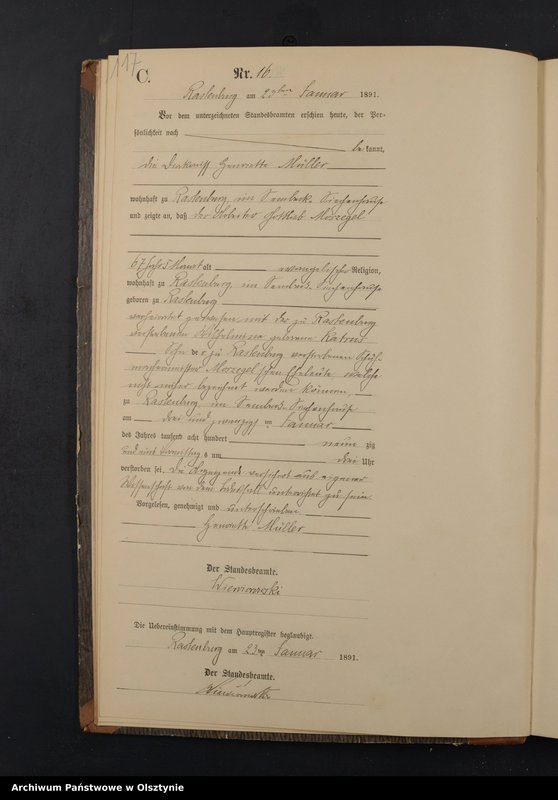 117
C.
Nr. 16.
Rastenburg am 23ten Januar 1891.
Vor dem unterzeichneten Standesbeamten erschien heute, der Per-
sönlichkeit nach
be kannt,
die Diakoniss Henriette Müller
wohnhaft zu Rastenburg im Sembeck. Siechenhause
und zeigte an, daß der Arbeiter Gottlieb Morzegel
67 Jahr 5 Monat alt evangelischer Religion,
wohnhaft zu Rastenburg im Sembeck. Siechenhause
geboren zu Rastenburg
verheirathet gewesen mit der zu Rastenburg
verstorbenen Wilhelmine geborene
Sohn der zu Rastenburg verstorbenen Schuh-
machermeister Morzegel'schen Eheleute welche
nicht näher bezeichnet werden können
zu Rastenburg im Sembeck. Siechenhause
am drei und zwanzigsten Januar
des Jahres tausend acht hundert neun zig
und eins Vormittags um drei Uhr
verstorben sei. Die Anzeigende versichert aus eigener
Wissenschaft von dem Todesfall unterrichtet zu sein.
Vorgelesen, genehmigt und unterschrieben
Henriette Müller
Der Standesbeamte.
Wiemorowski
Die Uebereinstimmung mit dem Hauptregister beglaubigt.
Rastenburg am 23ten Januar 1891.
Der Standesbeamte.
Archiwum Państwowe w Olsztynie